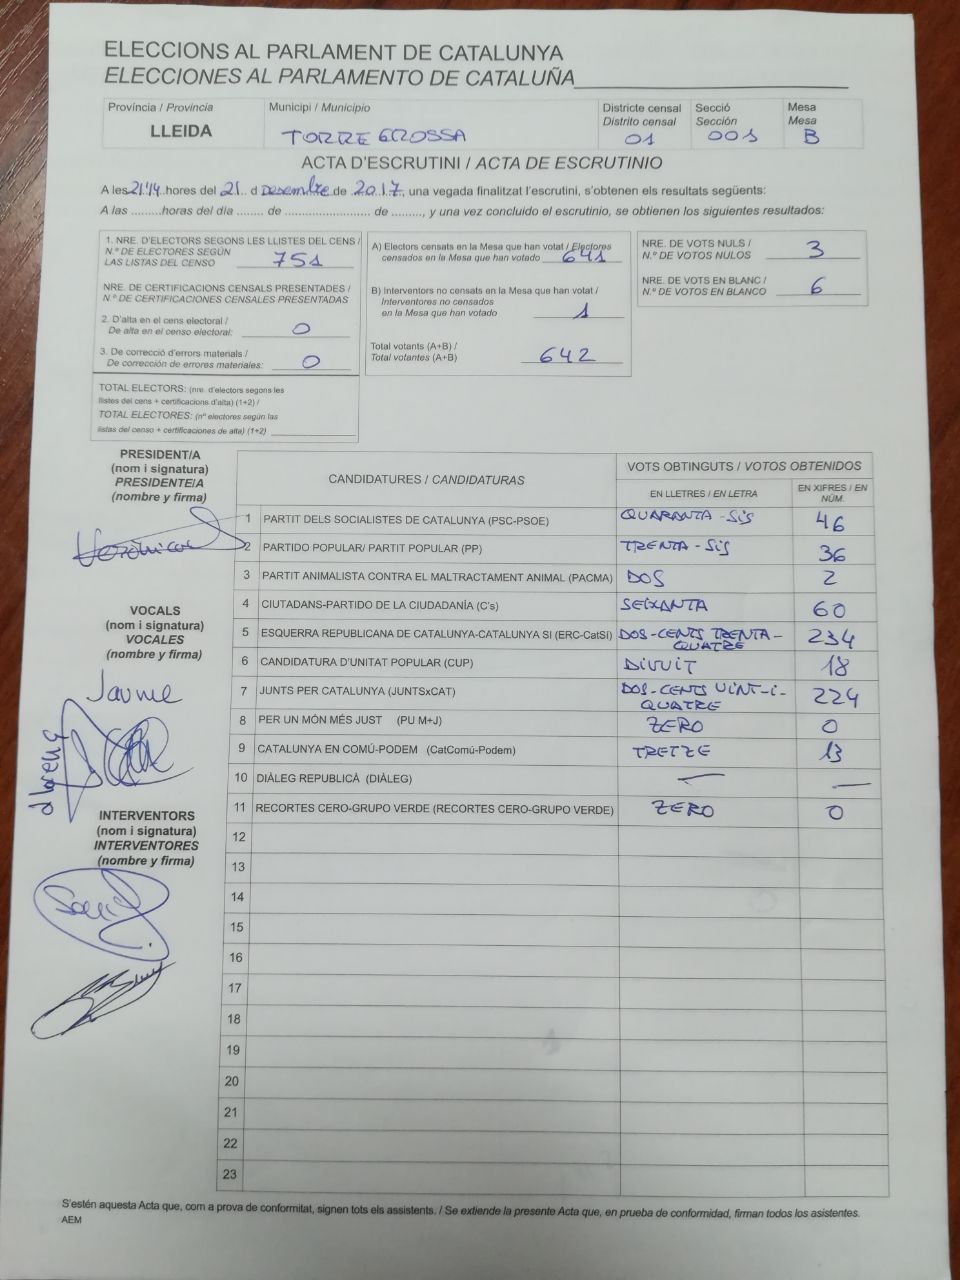 ELECCIONS AL PARLAMENT DE CATALUNYA
ELECCIONES AL PARLAMENTO DE CATALUÑA
Província / Provincia
LLEIDA
Municipi / Municipio
TORREGROSSA
Districte censal
Distrito censal
01
Secció
Sección
001
Mesa
Mesa
B
ACTA D'ESCRUTINI / ACTA DE ESCRUTINIO
A les 21'14 hores del 21 d Desembre de 2017, una vegada finalitzat l'escrutini, s'obtenen els resultats següents:
A las .........horas del día ........ de ......................... de ........., y una vez concluido el escrutinio, se obtienen los siguientes resultados:
1. NRE. D'ELECTORS SEGONS LES LLISTES DEL CENS /
N.º DE ELECTORES SEGÚN
LAS LISTAS DEL CENSO 751
NRE. DE CERTIFICACIONS CENSALS PRESENTADES /
N.º DE CERTIFICACIONES CENSALES PRESENTADAS
2. D'alta en el cens electoral /
De alta en el censo electoral: 0
3. De correcció d'errors materials /
De corrección de errores materiales: 0
TOTAL ELECTORS: (nre. d'electors segons les
llistes del cens + certificacions d'alta) (1+2) /
TOTAL ELECTORES: (nº electores según las
listas del censo + certificaciones de alta) (1+2)
A) Electors censats en la Mesa que han votat / Electores
censados en la Mesa que han votado 641
B) Interventors no censats en la Mesa que han votat /
Interventores no censados
en la Mesa que han votado 1
Total votants (A+B) /
Total votantes (A+B) 642
NRE. DE VOTS NULS /
N.º DE VOTOS NULOS 3
NRE. DE VOTS EN BLANC /
N.º DE VOTOS EN BLANCO 6
PRESIDENT/A
(nom i signatura)
PRESIDENTE/A
(nombre y firma)
Verònica
VOCALS
(nom i signatura)
VOCALES
(nombre y firma)
Jaume
INTERVENTORS
(nom i signatura)
INTERVENTORES
(nombre y firma)
CANDIDATURES / CANDIDATURAS
VOTS OBTINGUTS / VOTOS OBTENIDOS
EN LLETRES / EN LETRA
EN XIFRES / EN NÚM.
1 PARTIT DELS SOCIALISTES DE CATALUNYA (PSC-PSOE) QUARANTA-SIS 46
2 PARTIDO POPULAR/ PARTIT POPULAR (PP) TRENTA-SIS 36
3 PARTIT ANIMALISTA CONTRA EL MALTRACTAMENT ANIMAL (PACMA) DOS 2
4 CIUTADANS-PARTIDO DE LA CIUDADANÍA (C's) SEIXANTA 60
5 ESQUERRA REPUBLICANA DE CATALUNYA-CATALUNYA SI (ERC-CatSI) DOS-CENTS TRENTA-QUATRE 234
6 CANDIDATURA D'UNITAT POPULAR (CUP) DIVUIT 18
7 JUNTS PER CATALUNYA (JUNTSxCAT) DOS-CENTS VINT-I-QUATRE 224
8 PER UN MÓN MÉS JUST (PU M+J) ZERO 0
9 CATALUNYA EN COMÚ-PODEM (CatComú-Podem) TRETZE 13
10 DIÀLEG REPUBLICÀ (DIÀLEG) — —
11 RECORTES CERO-GRUPO VERDE (RECORTES CERO-GRUPO VERDE) ZERO 0
12
13
14
15
16
17
18
19
20
21
22
23
S'estén aquesta Acta que, com a prova de conformitat, signen tots els assistents. / Se extiende la presente Acta que, en prueba de conformidad, firman todos los asistentes.
AEM